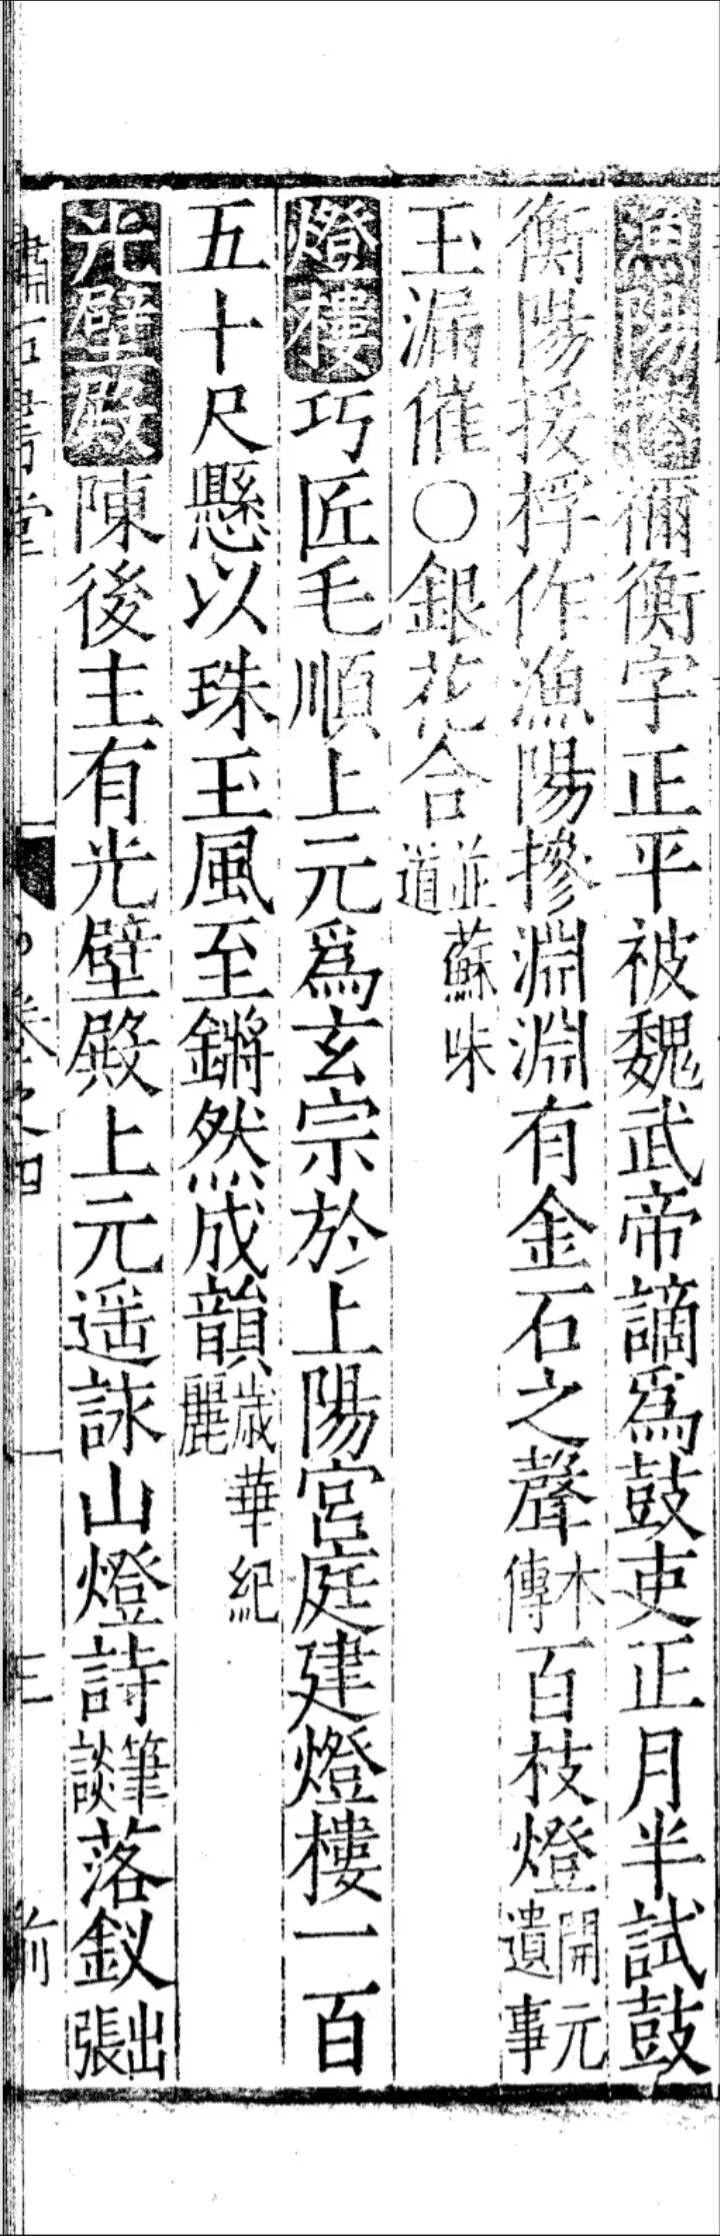 漁陽摻禰衡字正平被魏武帝謫爲鼓吏正月半試鼓
衡陽援桴作漁陽摻淵淵有金石之聲本傳百枝燈開元遺事
玉漏催○銀花合並蘇味道
燈樓巧匠毛順上元爲玄宗於上陽宮庭建燈樓一百
五十尺懸以珠玉風至鏘然成韻歲華紀麗
光壁殿陳後主有光壁殿上元遥詠山燈詩筆談落釵出張
卷之四
三
前